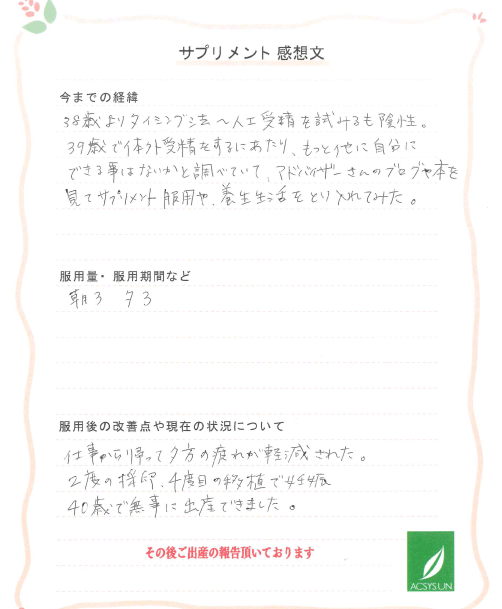 サプリメント 感想文
今までの経緯
38歳よりタイミング法〜人工受精を試みるも陰性。
39歳で体外受精をするにあたり、もっと他に自分に
できる事はないかと調べていて、アドバイザーさんのブログや本を
見てサプリメント服用や、養生生活をとり入れてみた。
服用量・服用期間など
朝3 夕3
服用後の改善点や現在の状況について
仕事から帰って夕方の疲れが軽減された。
2度の採卵、4度目の移植で妊娠
40歳で無事に出産できました。
その後ご出産の報告頂いております
ACSYSUN